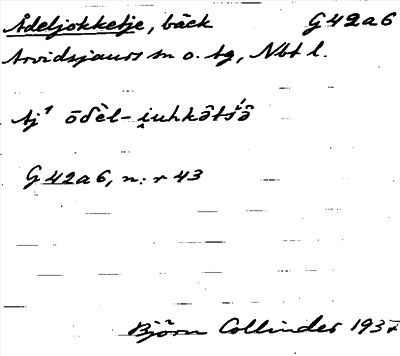 Ådeljokketje, bäck G 42 a 6
Arvidsjaurs sn o. tg, Nbt l.
Aj¹ ōδèl-i̯uhkåtśå
G 42 a 6, n: r 43
Björn Collinder 1937